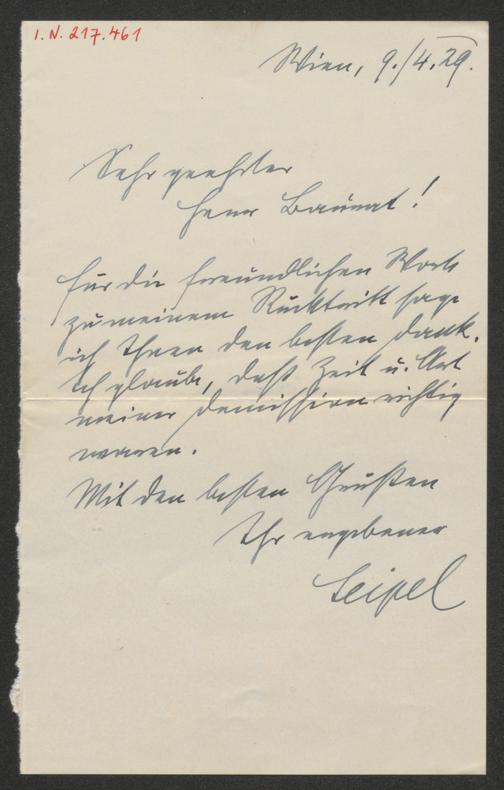 I. N. 217.461
Wien, 9./4.29.
Sehr geehrter
Herr Baurat!
Für die freundlichen Worte
zu meinem Rücktritt sage
ich Ihnen den besten Dank.
Ich glaube, daß Zeit u. Art
meiner Demission richtig
waren.
Mit den besten Grüßen
Ihr ergebener
Seipel